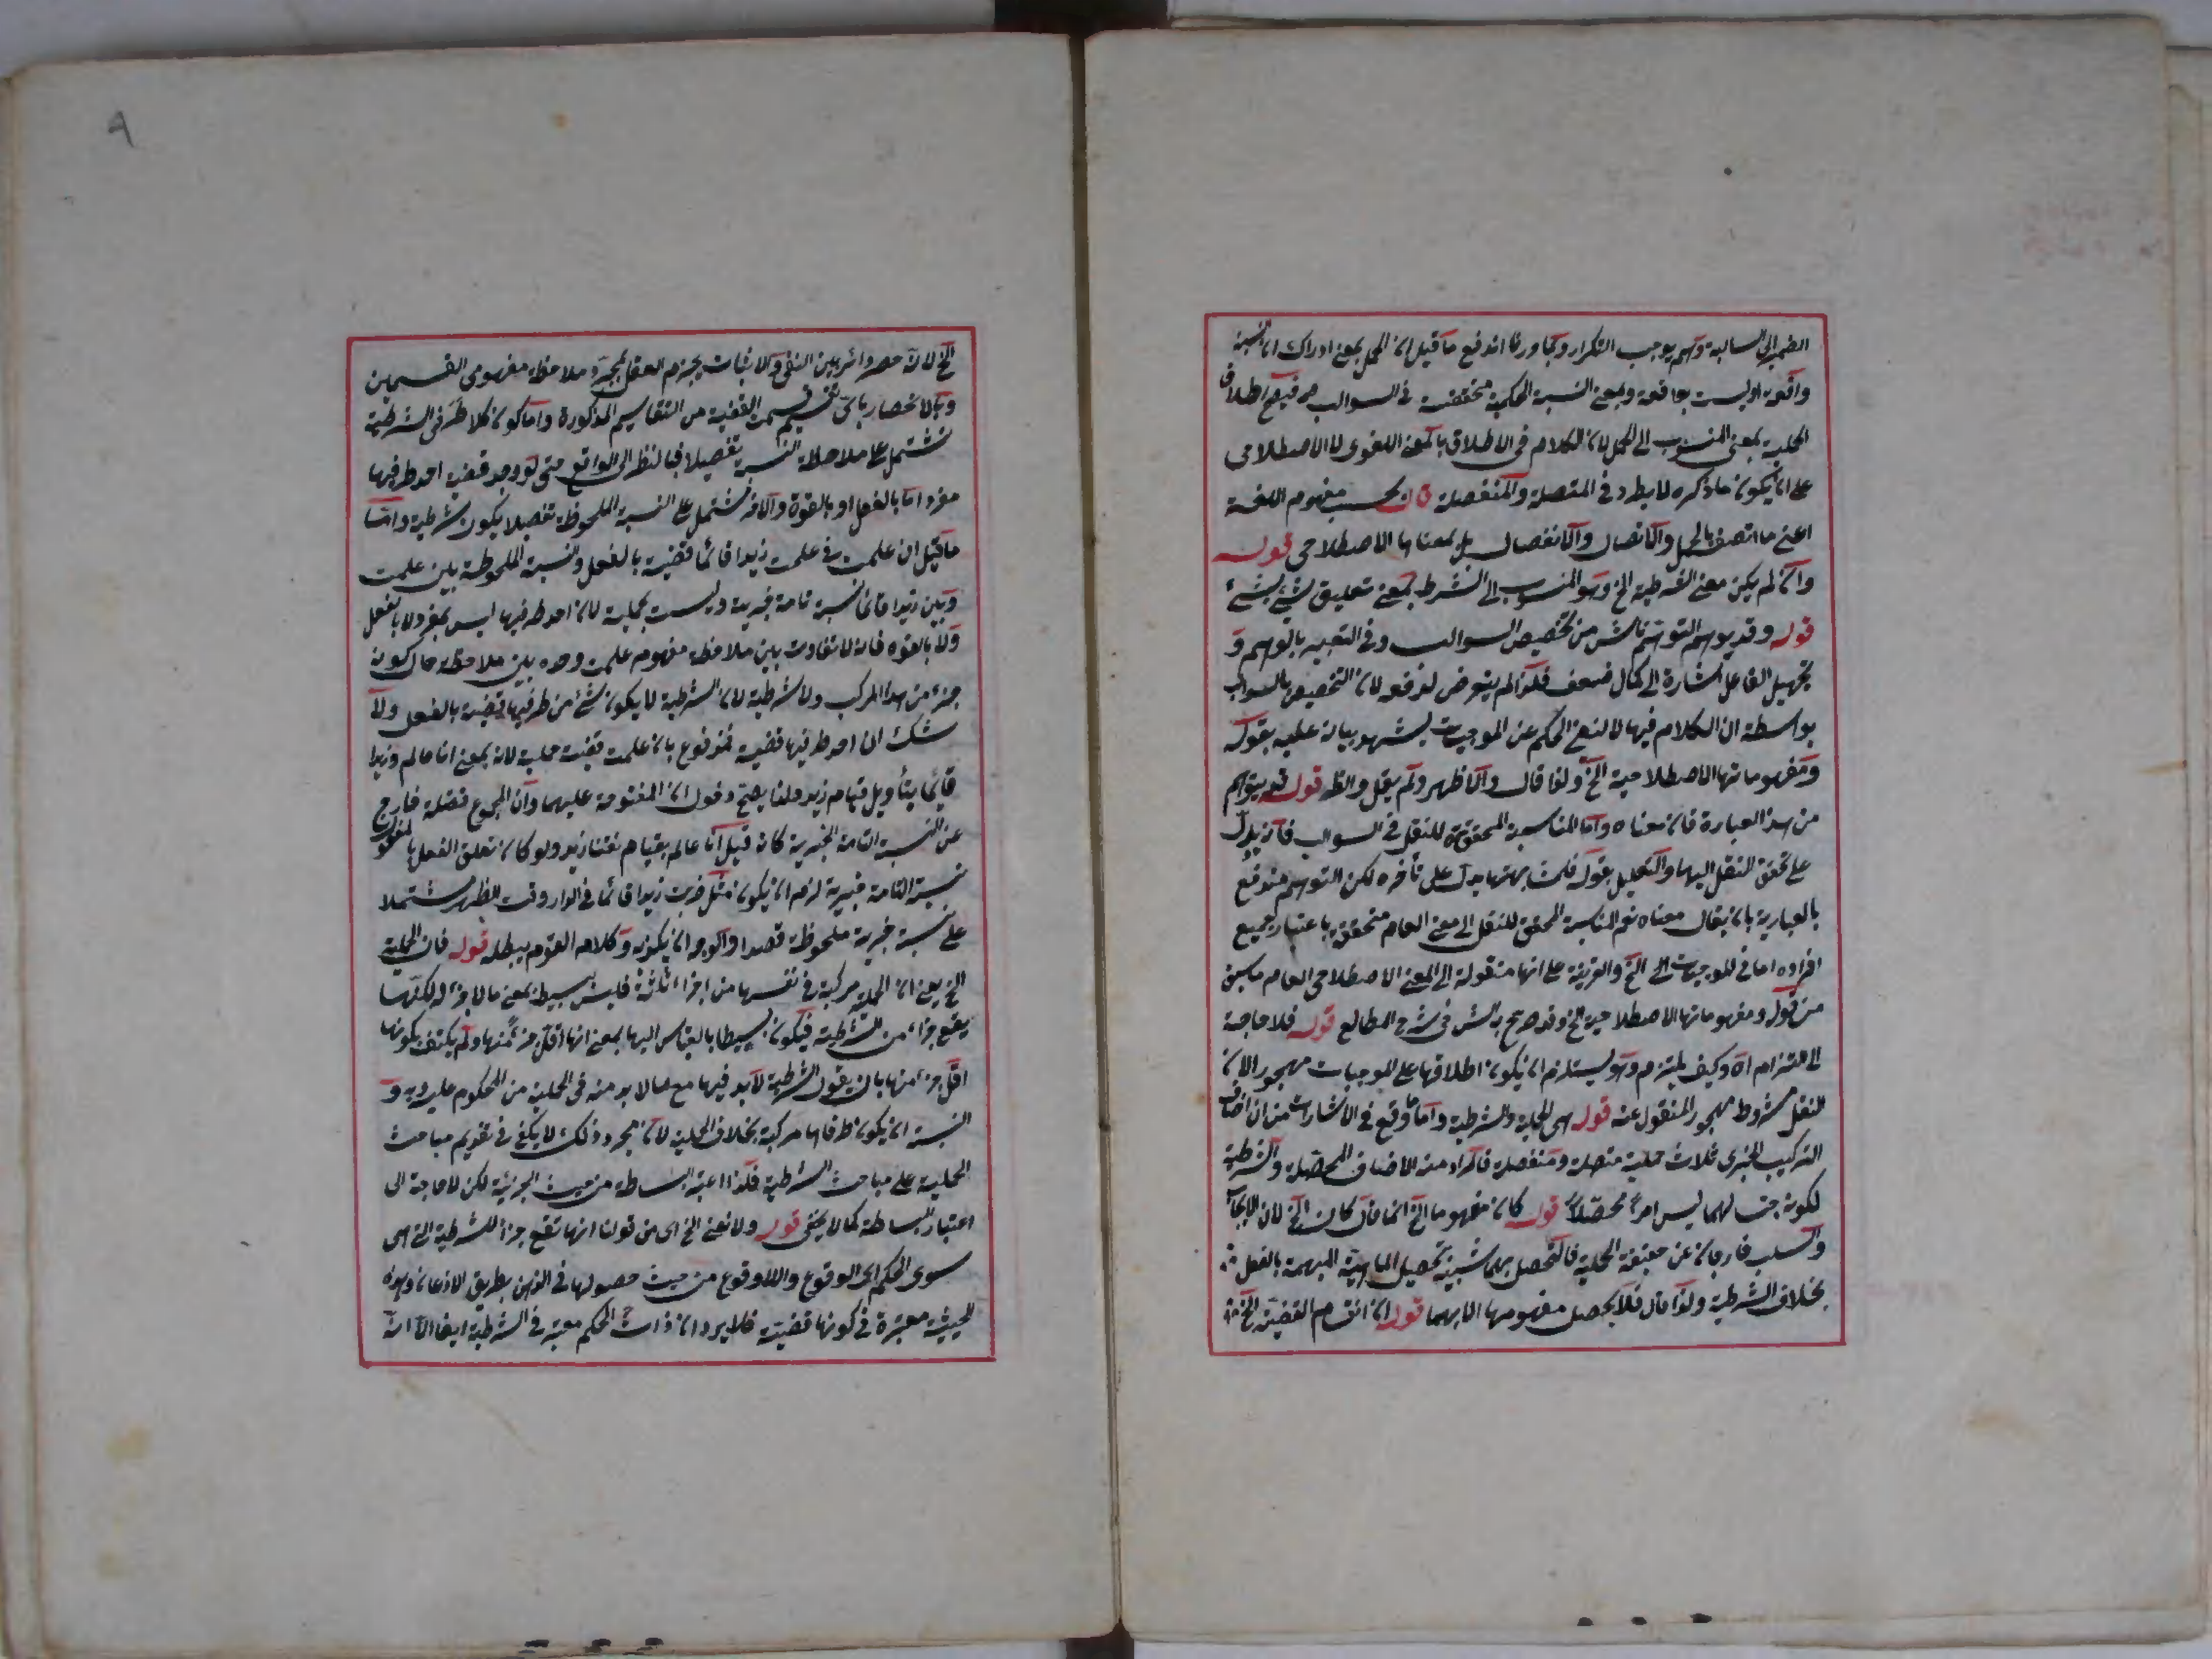 الضمير الى السالبة وهم يوجب التكرار وبما قررنا اندفع ما قيل ان الحمل بمعنى ادراك ان النسبة
واقعة او ليست بواقعة وبمعنى النسبة الحكمية متحققة في السوالب فيصح اطلاق
الحملية بمعنى المنسوب الى الحمل لان الكلام في الاطلاق بالمعنى اللغوى لا الاصطلاحى
على ان يكون ما ذكره لا يطرد في المتصلة والمنفصلة قال بحسب مفهوم اللغة
اعنى ما اتصف بالحمل والاتصال والانفصال بل بمعناها الاصطلاحى قوله
وان لم يكن معنى الشرطية الخ وهو المنسوب الى الشرط بمعنى تعليق شئ بشئ
قوله وقد يوهم التوهم ناش من تخصيص السوالب وفي التعبير بالوهم و
تجهيل الفاعل اشارة الى كمال ضعف فلذا لم يتعرض لدفعه لان التخصيص بالسوالب
بواسطة ان الكلام فيها لا لنفى الحكم عن الموجبات يشهد بيانه عليه بقوله
ومفهوماتها الاصطلاحية الخ ولذا قال والاظهر ولم يقل والظ قوله قد يتوهم
من هذا العبارة فان معناه واما المناسبة المحققة للنقل في السوالب فانه يدل
على تحقق النقل اليها والتعليل بقوله فلمشابهتها يدل على تأخره لكن التوهم مندفع
بالعبارية بان يقال معناه نعم المناسبة المحققة للنقل الى معنى العام متحققة باعتبار جميع
افراده اما في الموجبات الخ والقرينة على انها منقولة الى المعنى الاصطلاحى العام ما سبق
من قوله ومفهوماتها الاصطلاحية الخ وقد صرح به الش في شرح المطالع قوله فلا حاجة
الى التزام اه وكيف يلتزم وهو يستلزم ان يكون اطلاقها على الموجبات مهجورا لان
النقل مشروط بهجور المنقول عنه قوله هى الحملية والشرطية واما ما وقع في الاشارات من ان اصناف
التركيب الخبرى ثلاث حملية متصلة ومنفصلة فالمراد منه الاصناف المحصلة والشرطية
لكونه جنسا لهما ليس امرا محصلا قوله كان مفهوما الخ انما قال كان الخ لان الايجاب
والسلب خارجان عن حقيقة الحملية فالتحصل بهما شبيه تحصيل الماهية المبهمة بالفصل
بخلاف الشرطية ولذا قال فلا يحصل مفهومها الا بهما قوله ان انقسام القضية الخ
الخ لانه حصر دائر بين النفى والاثبات يجزم العقل بمجرد ملاحظة مفهومى القسمين
وبالانحصار باى تقسيم قسمت القضية من التقاسيم المذكورة واما كون كلا طرفى الشرطية
تشتمل على ملاحظة النسبة تفصيلا فبالنظر الى الواقع حتى لو وجد قضية احد طرفيها
مفرد اما بالفعل او بالقوة والآخر تشتمل على النسبة الملحوظة تفصيلا يكون شرطية واما
ما قيل ان علمت في علمت زيدا قائما قضية بالفعل والنسبة الملحوظة بين علمت
وبين زيدا قائما نسبة تامة خبرية وليست بحملية لان احد طرفيها ليس بمفرد لا بالفعل
ولا بالقوة فانه لا تفاوت بين ملاحظة مفهوم علمت وحده وبين ملاحظة حال كونه
جزء من هذا المركب ولا شرطية لان الشرطية لا يكون شئ من طرفيها قضية بالفعل ولا
شك ان احد طرفيها قضية فمدفوع بان علمت قضية حملية لانه بمعنى انا عالم وزيدا
قائما بتأويل قيام زيد ولذا يصح دخول ان المفتوحة عليهما وان المجموع فضلة خارج
عن النسبة التامة الخبرية كانه قيل انا عالم بقيام زيد ولو كان تعلق الفعل بالمفعول
نسبة التامة خبرية لزم ان يكون مثل ضربت زيدا قائما في الدار وقت الظهر مشتملا
على نسبة خبرية ملحوظة قصدا والوجدان يكذبه وكلام القوم يبطله قوله فان الحملية
الخ يعنى ان الحملية مركبة في نفسها من اجزاء ثلثة فليس بسيطة بمعنى ما لا جزء له لكنها
يقع جزاء من الشرطية فيكون بسيطا بالقياس اليها بمعنى انها اقل جزء منها ولم يكتف بكونها
اقل جزء منها بان يقول الشرطية لا بد فيها مع ما لا بد منه في الحملية من المحكوم عليه وبه و
النسبة ان يكون طرفاها مركبة بخلاف الحملية لان مجرد ذلك لا يكفى في تقديم مباحث
الحملية على مباحث الشرطية فلذا اعتبر البساطة من حيث الجزئية لكن لا حاجة الى
اعتبار البساطة كما لا يخفى قوله ولا نعنى الخ اى من قولنا انها تقع جزأ للشرطية التى هى
سوى الحكم اى الوقوع واللاوقوع من حيث حصولها في الذهن بطريق الاذعان وهذه
الحيثية معتبرة في كونها قضية فلا يرد ان ذات الحكم معتبر في الشرطية ايضا الا انه